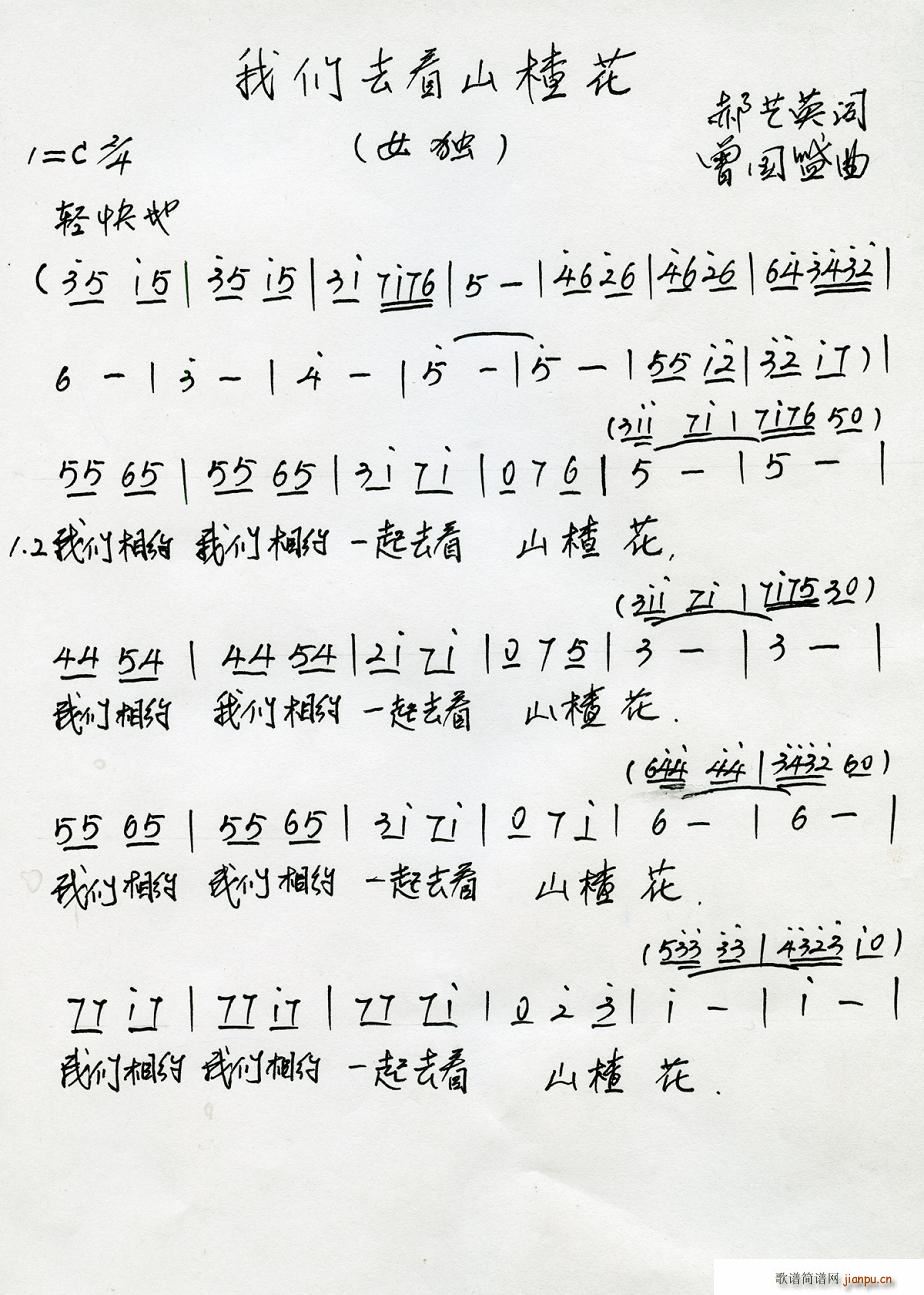 我们去看山楂花
(女独)
郝艺英词
1=C 2/4
曾国盛曲
轻快地
(3̇5 i5 | 3̇5 i5 | 3i 7i76 | 5 - | 4̇6 2̇6 | 4̇6 2̇6 | 64̇ 3̇4̇3̇2̇ |
6 - | 3̇ - | 4̇ - | 5̇ - | 5̇ - | 55 i2̇ | 3̇2̇ i7) |
(3ii 7i | 7i76 50)
55 65 | 55 65 | 3i 7i | 0 7 6 | 5 - | 5 - |
1.2 我们相约 我们相约 一起去看 山楂花,
(3ii 7i | 7i75 30)
44 54 | 44 54 | 2i 7i | 0 7 5 | 3 - | 3 - |
我们相约 我们相约 一起去看 山楂花.
(64̇4̇ 4̇4̇ | 3̇4̇3̇2̇ 60)
55 65 | 55 65 | 3i 7i | 0 7 i | 6 - | 6 - |
我们相约 我们相约 一起去看 山楂花.
(53̇3̇ 3̇3̇ | 4̇3̇2̇3̇ i0)
77 i7 | 77 i7 | 77 7i | 0 2̇ 3̇ | i - | i - |
我们相约 我们相约 一起去看 山楂花.
歌谱简谱网 jianpu.cn